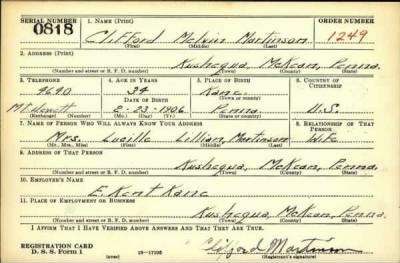 SERIAL NUMBER 1. NAME (Print) ORDER NUMBER
0818 Clifford Melvin Martinson 1249
(First) (Middle) (Last)
2. ADDRESS (Print)
Kushequa, McKean, Penna.
(Number and street or R. F. D. number) (Town) (County) (State)
3. TELEPHONE 4. AGE IN YEARS 5. PLACE OF BIRTH 6. COUNTRY OF CITIZENSHIP
9690 34 Kane
DATE OF BIRTH (Town or county)
Mt. Jewett 2-23-1906 Penna. U.S.
(Exchange) (Number) (Mo.) (Day) (Yr.) (State or country)
7. NAME OF PERSON WHO WILL ALWAYS KNOW YOUR ADDRESS 8. RELATIONSHIP OF THAT PERSON
Mrs. Lucille Lillian Martinson Wife
(Mr., Mrs., Miss) (First) (Middle) (Last)
9. ADDRESS OF THAT PERSON
Kushequa, McKean, Penna.
(Number and street or R. F. D. number) (Town) (County) (State)
10. EMPLOYER'S NAME
E. Kent Kane
11. PLACE OF EMPLOYMENT OR BUSINESS
Kushequa, McKean, Penna.
(Number and street or R. F. D. number) (Town) (County) (State)
I AFFIRM THAT I HAVE VERIFIED ABOVE ANSWERS AND THAT THEY ARE TRUE.
REGISTRATION CARD
D. S. S. Form 1 Clifford Martinson
(Registrant's signature)